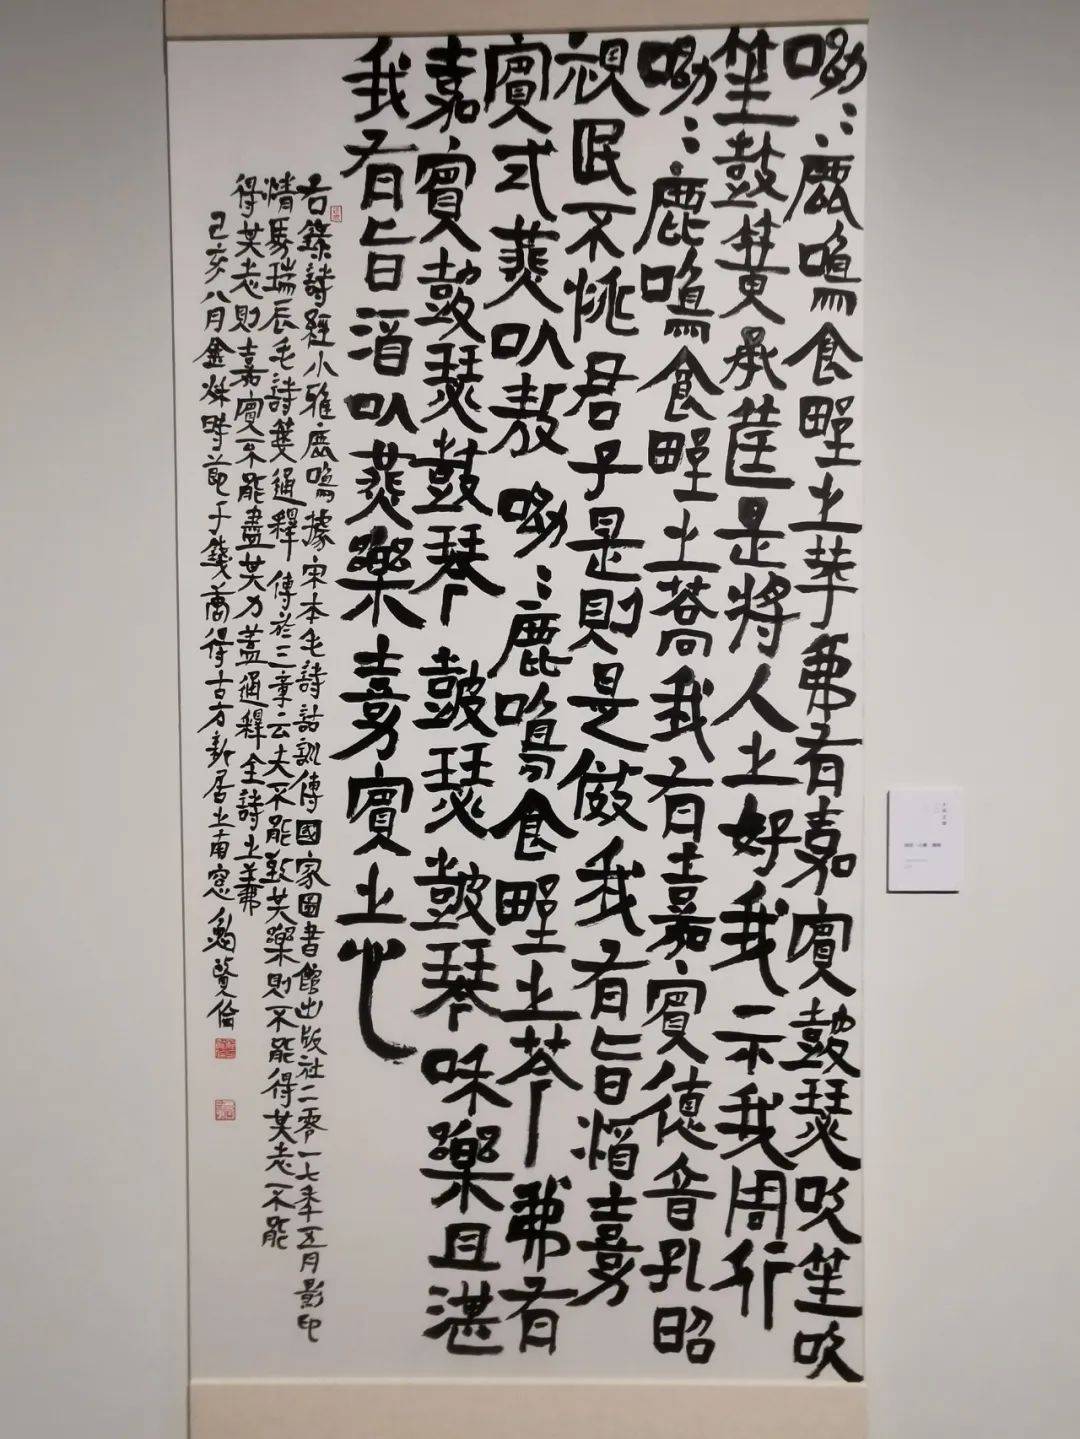 呦〻鹿鳴食野之苹我有嘉賓鼓瑟吹笙吹
笙鼓簧承筐是將人之好我示我周行
呦〻鹿鳴食野之蒿我有嘉賓德音孔昭
視民不恌君子是則是傚我有旨酒嘉
賓式燕以敖呦〻鹿鳴食野之芩我有
嘉賓鼓瑟鼓琴鼓瑟鼓琴和樂且湛
我有旨酒以燕樂嘉賓之心
右錄詩經小雅鹿鳴據宋本毛詩詁訓傳國家圖書館出版社二零一七年五月影印
清馬瑞辰毛詩箋通釋傳於三章云夫不能致其樂則不能得其志不能
得其志則嘉賓不能盡其力蓋通釋全詩之義
己亥八月金秋時節于錢得古方新居之南窗